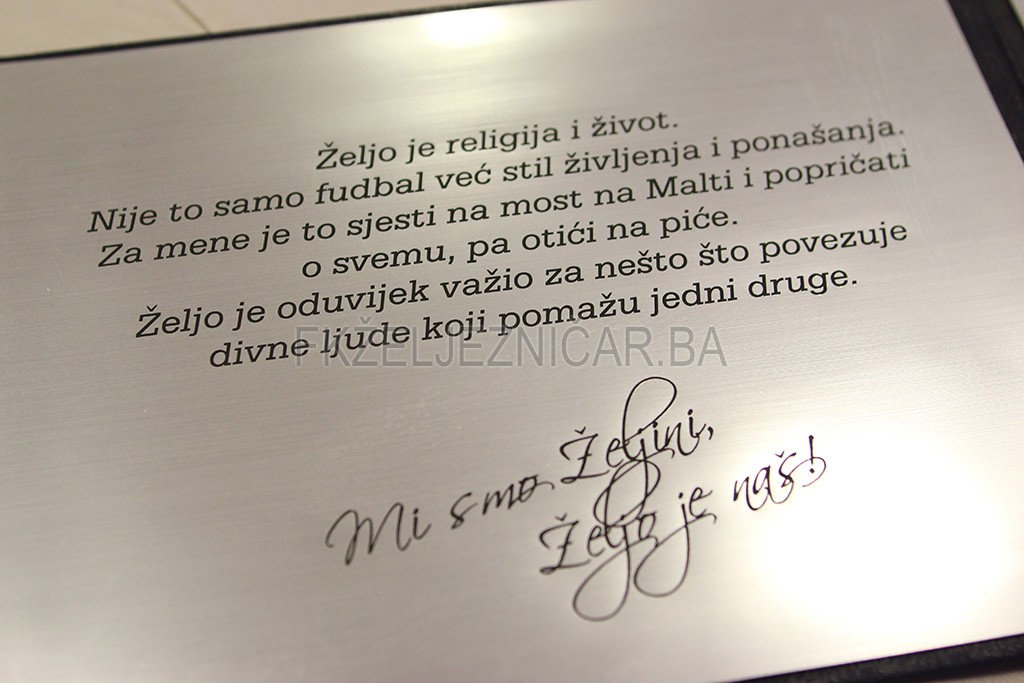 Željo je religija i život.
Nije to samo fudbal već stil življenja i ponašanja.
Za mene je to sjesti na most na Malti i popričati
o svemu, pa otići na piće.
Željo je oduvijek važio za nešto što povezuje
divne ljude koji pomažu jedni druge.
FKŽELJEZNICAR.BA
Mi smo Željini,
Željo je naš!